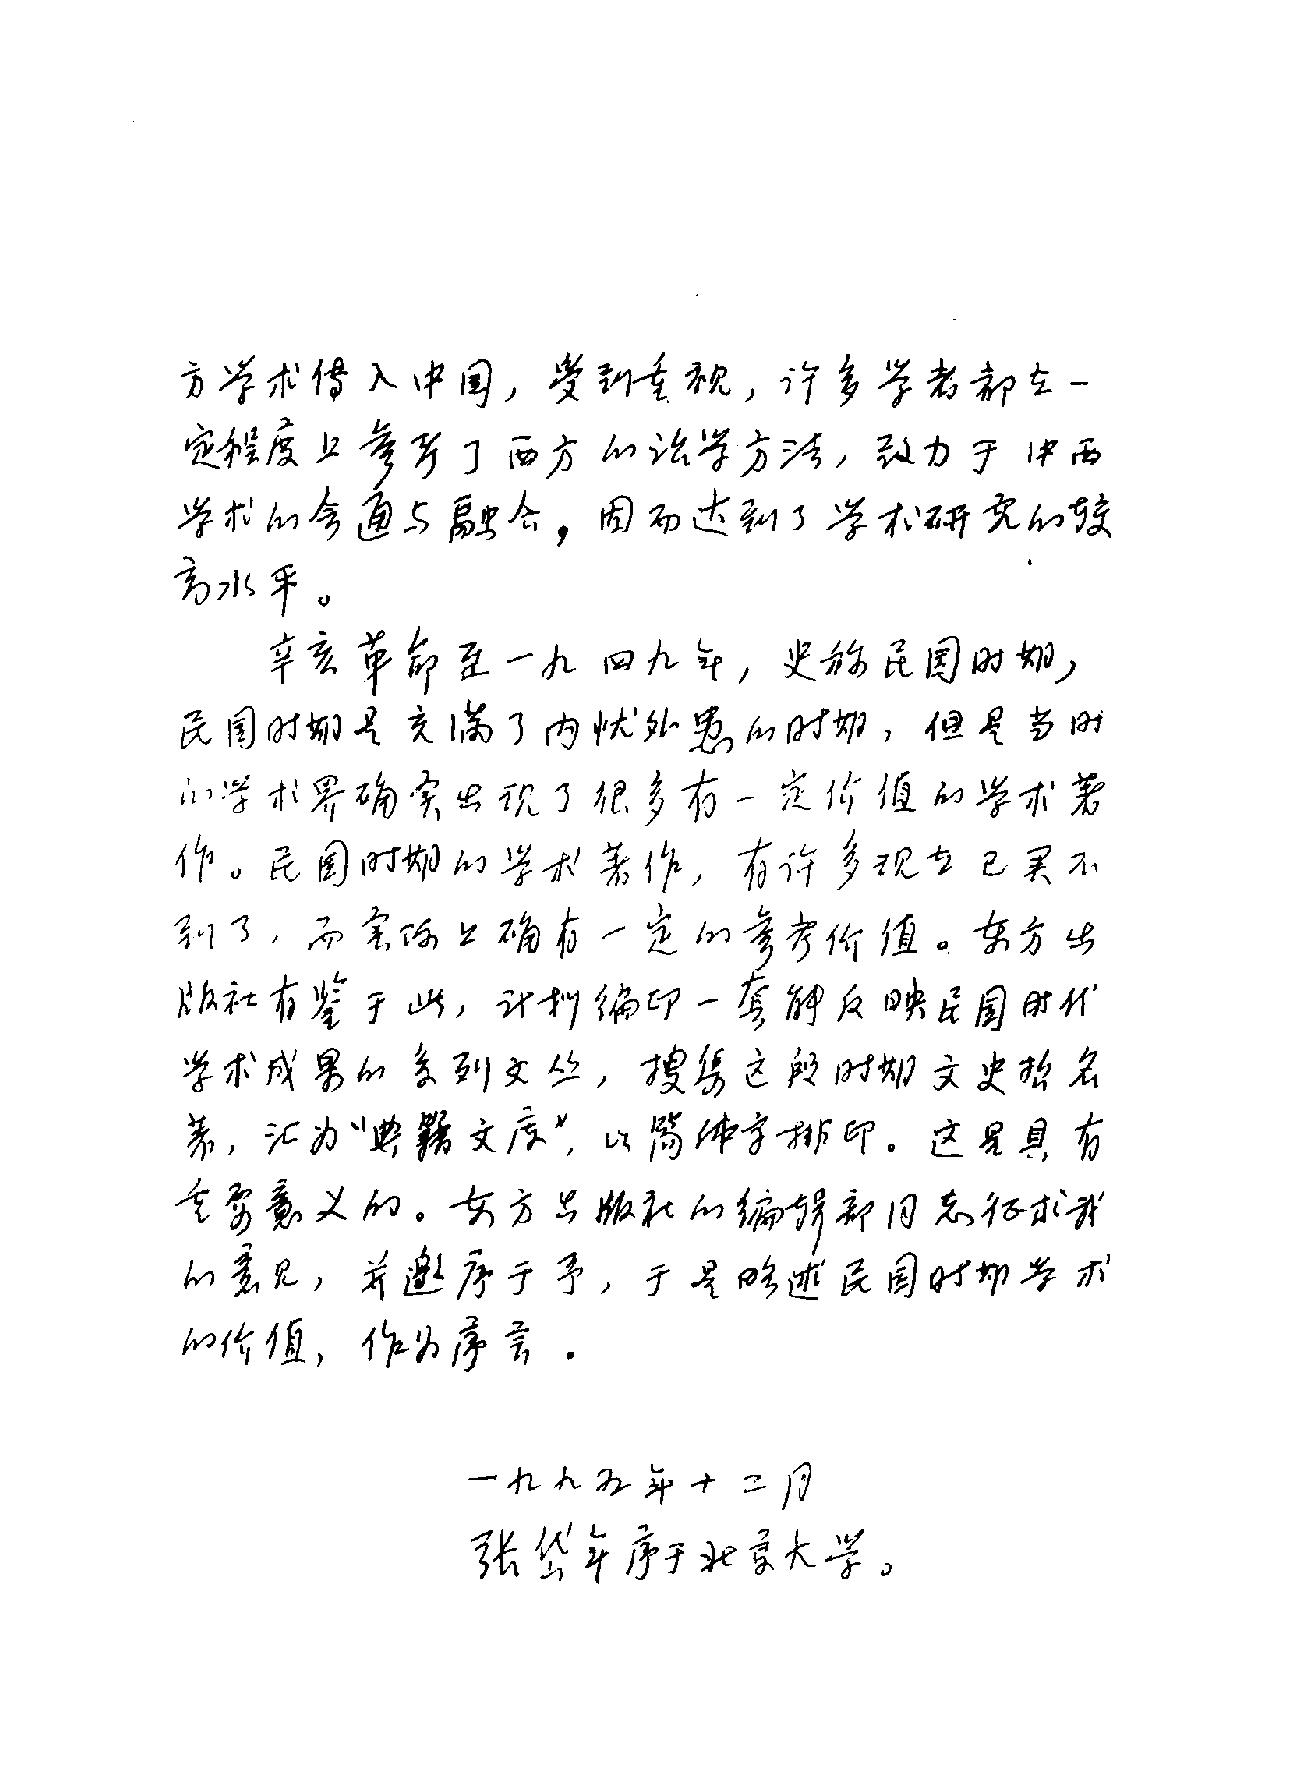 方学术传入中国，受到重视，许多学者都在一
定程度上参考了西方的治学方法，致力于中西
学术的会通与融合，因而达到了学术研究的较
高水平。
辛亥革命至一九四九年，史称民国时期，
民国时期是充满了内忧外患的时期，但是当时
的学术界确实出现了很多有一定价值的学术著
作。民国时期的学术著作，有许多现在已买不
到了，而实际上确有一定的参考价值。东方出
版社有鉴于此，计划编印一套能反映民国时代
学术成果的系列文丛，搜集这段时期文史哲名
著，汇为“典籍文库”，以简体字排印。这是具有
重要意义的。东方出版社的编辑部同志征求我
的意见，并邀序于予，于是略述民国时期学术
的价值，作为序言.
一九九五年十二月
张岱年序于北京大学。